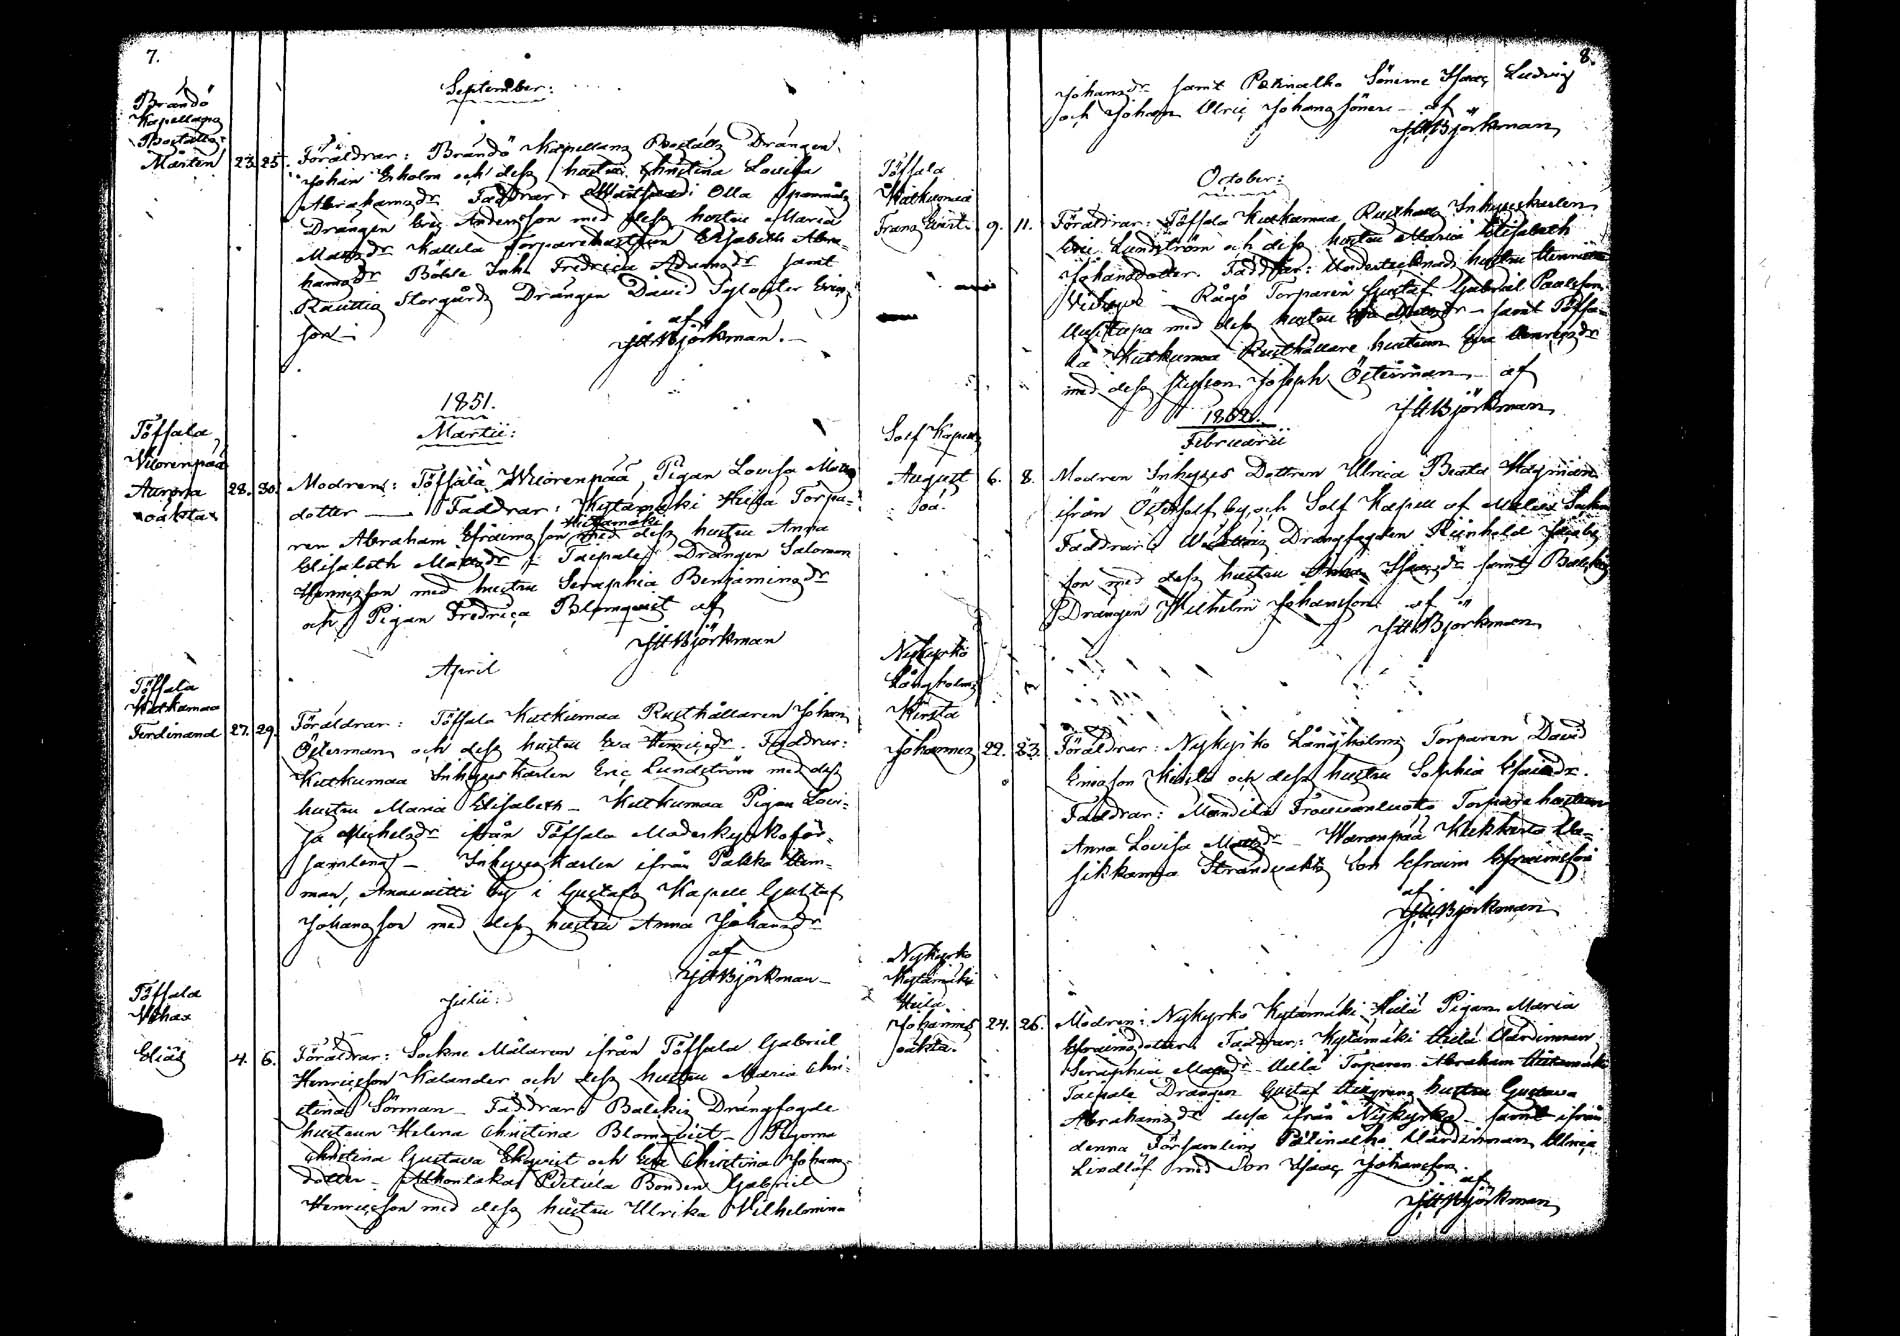 7.
September:
Brändö
Kapellans
Boställe
Mårten 23. 25. Föräldrar: Brändö Kapellans Boställs Drängen
Johan Ekholm och dess hustru Christina Lovisa
Abrahamsdr Faddrar: Olla
Drängen Eric Andersson med dess hustru Maria
Matsdr Kallela Torparehustrun Elisabeth Abra-
hamsdr Böhle Inh. Fredrica Adamsdr samt
Storgårds Drängen David Erics-
son -
af
JHBjörkman.-
1851.
Martii:
Töffsala
Wuorenpää
Aurora
oäkta 28. 30. Modren: Töffsala Wuorenpää Pigan Lovisa Matts
dotter - Faddrar: Kytämäki Heila Torpa-
ren Abraham Efraimsson Hietamäki med dess hustru Anna
Elisabeth Mattsdr - Taipale Drängen Salomon
Henricsson med hustru Seraphia Benjaminsdr
och Pigan Fredrica Blomqvist af
JHBjörkman
April
Töffsala
Kutkumaa
Ferdinand 27. 29. Föräldrar: Töffsala Kutkumaa Rusthållaren Johan
Österman och dess hustru Eva Henricsdr. Faddrar:
Kutkumaa Inhyses Karlen Eric Lundström med dess
hustru Maria Elisabeth - Kutkumaa Pigan Lovi-
sa Michelsdr ifrån Töffsala Moderkyrkoför-
samling - Inhyses Karlen ifrån Pakka Hem-
man, Anavaitti by i Gustafs Kapell Gustaf
Johansson med dess hustru Anna Johansdr
af
JHBjörkman -
Julii:
Töffsala
Wehas
Elias 4. 6. Föräldrar: Sockne Målaren ifrån Töffsala Gabriel
Henricsson Kalander och dess hustru Maria Chri-
stina Sörman - Faddrar: Balckis Drängfogde
hustrun Helena Christina Blomqvist - Pigorna
Christina Gustava Ekqvist och Eva Christina Johans-
dotter - Pietila Bonden Gabriel
Henricsson med dess hustru Ulrika Wilhelmina
8.
Johansdr samt Patinalko Sönerne Isaac Ludvig
och Johan Ulric Johans söner - af
JHBjörkman
October:
Töffsala
Kutkumaa
Frans Evert 9. 11. Föräldrar: Töffsala Kutkumaa Rusthålls Inhyseskarlen
Eric Lundström och dess hustru Maria Elisabeth
Johansdotter. Faddrar: Undertecknads hustru
- Rågö Torparen Gustaf Gabriel Paalsson
Uusitupa med dess hustru - samt Töffsa-
la Kutkumaa Rusthållare hustrun Eva Henricsdr
med dess styfson Joseph Österman - af
JHBjörkman
1852.
Februarii
Solf Kapell
August
oä. 6. 8. Modren Inhyses Dottren Ulrica Beata Hagman
ifrån Östersolf by, och Solf Kapell af Malax Sochn
Faddrar: Drängfogden Reinhold Jacobs
son med dess hustru Anna Isacsdr samt Balckis
Drängen Wilhelm Johansson af
JHBjörkman
Nykyrko
Långholms
Kirsta
Johannes 22. 23. Föräldrar: Nykyrko Långholms Torparen David
Ericsson Kirsta och dess hustru Sophia Esaiadr.
Faddrar: Mandila Torpare hustrun
Anna Lovisa Mattsdr - Waranpää
Strandvakts Son Efraim Efraimsson
af
JHBjörkman
Nykyrko
Kytämäki
Heila
Johannes
oäkta. 24. 26. Modren: Nykyrko Kytämäki Heila Pigan Maria
Efraimsdotter. Faddrar: Kytämäki Heila Värdinnan
Seraphia Mattsdr - Heila Torparen Abraham Hietamäki
Taipale Drängen Gustaf hustru Gustava
Abrahamsdr dessa ifrån Nykyrko - samt ifrån
denna Församling Patinalko Värdinnan Ulrica
Lindlöf med Son Isaac Johansson.
af
JHBjörkman